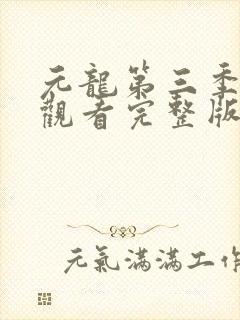 元龍第三季
觀看完整版
元氣滿滿工作